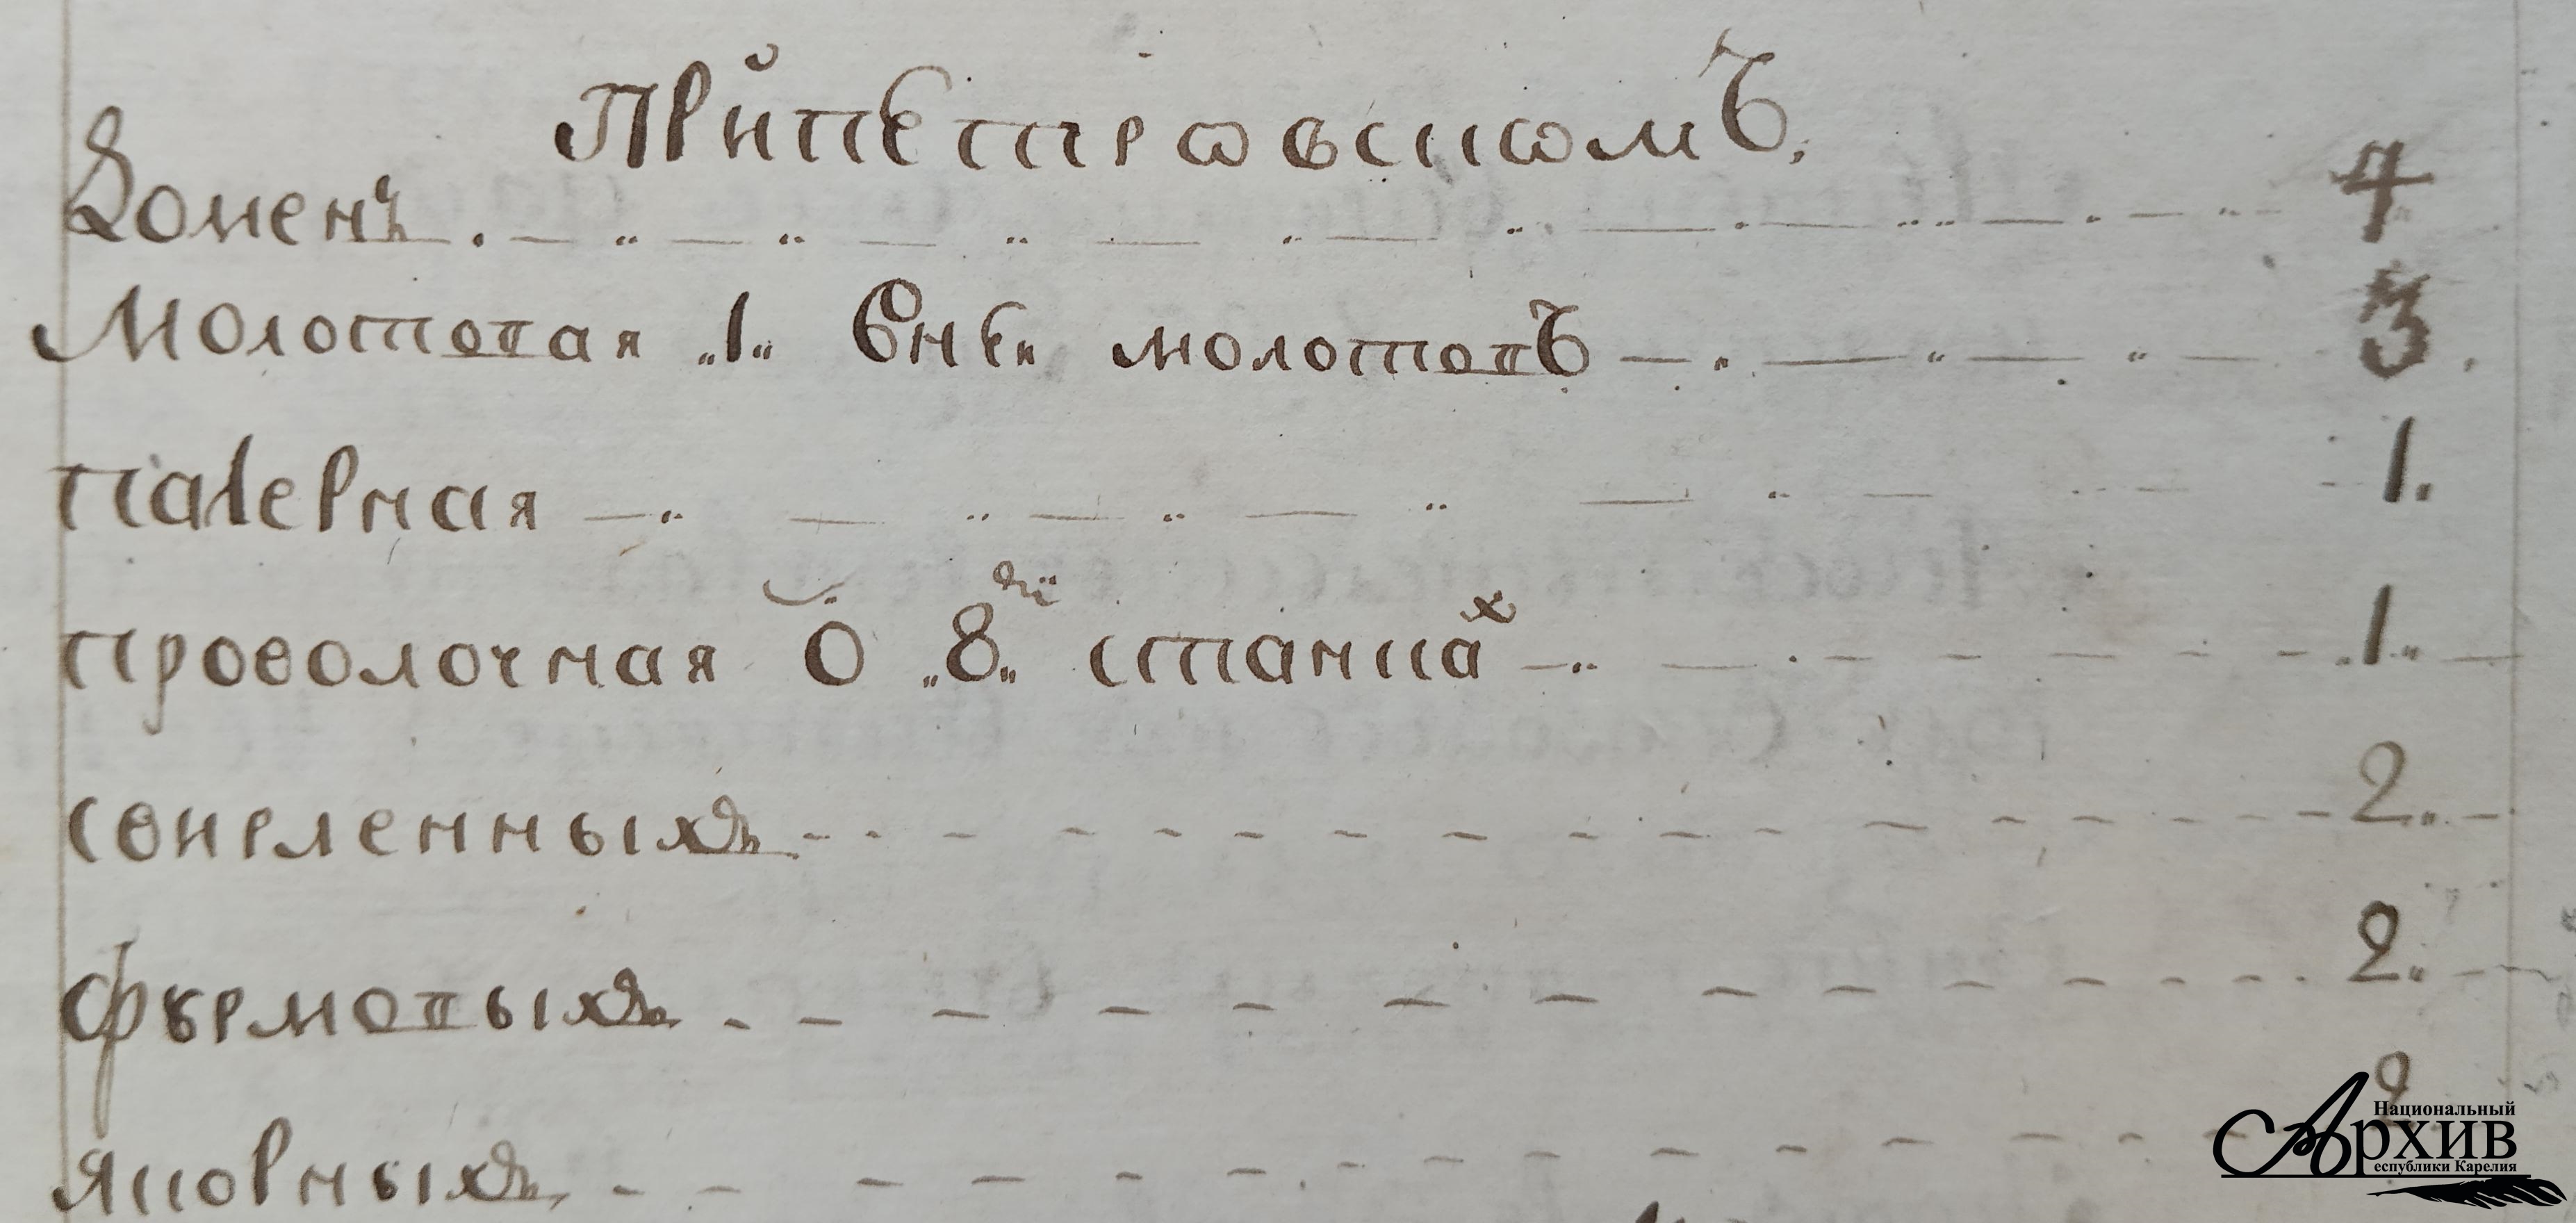 При Петровскомъ,
Доменъ 4
Молотовая „1„ В ней молотовъ 3.
Якорная 1.
проволочная о „8„ми станка х 1.
сверленныхъ 2.
фурмовыхъ 2.
якорныхъ 2
Национальный
Архив
Республики Карелия